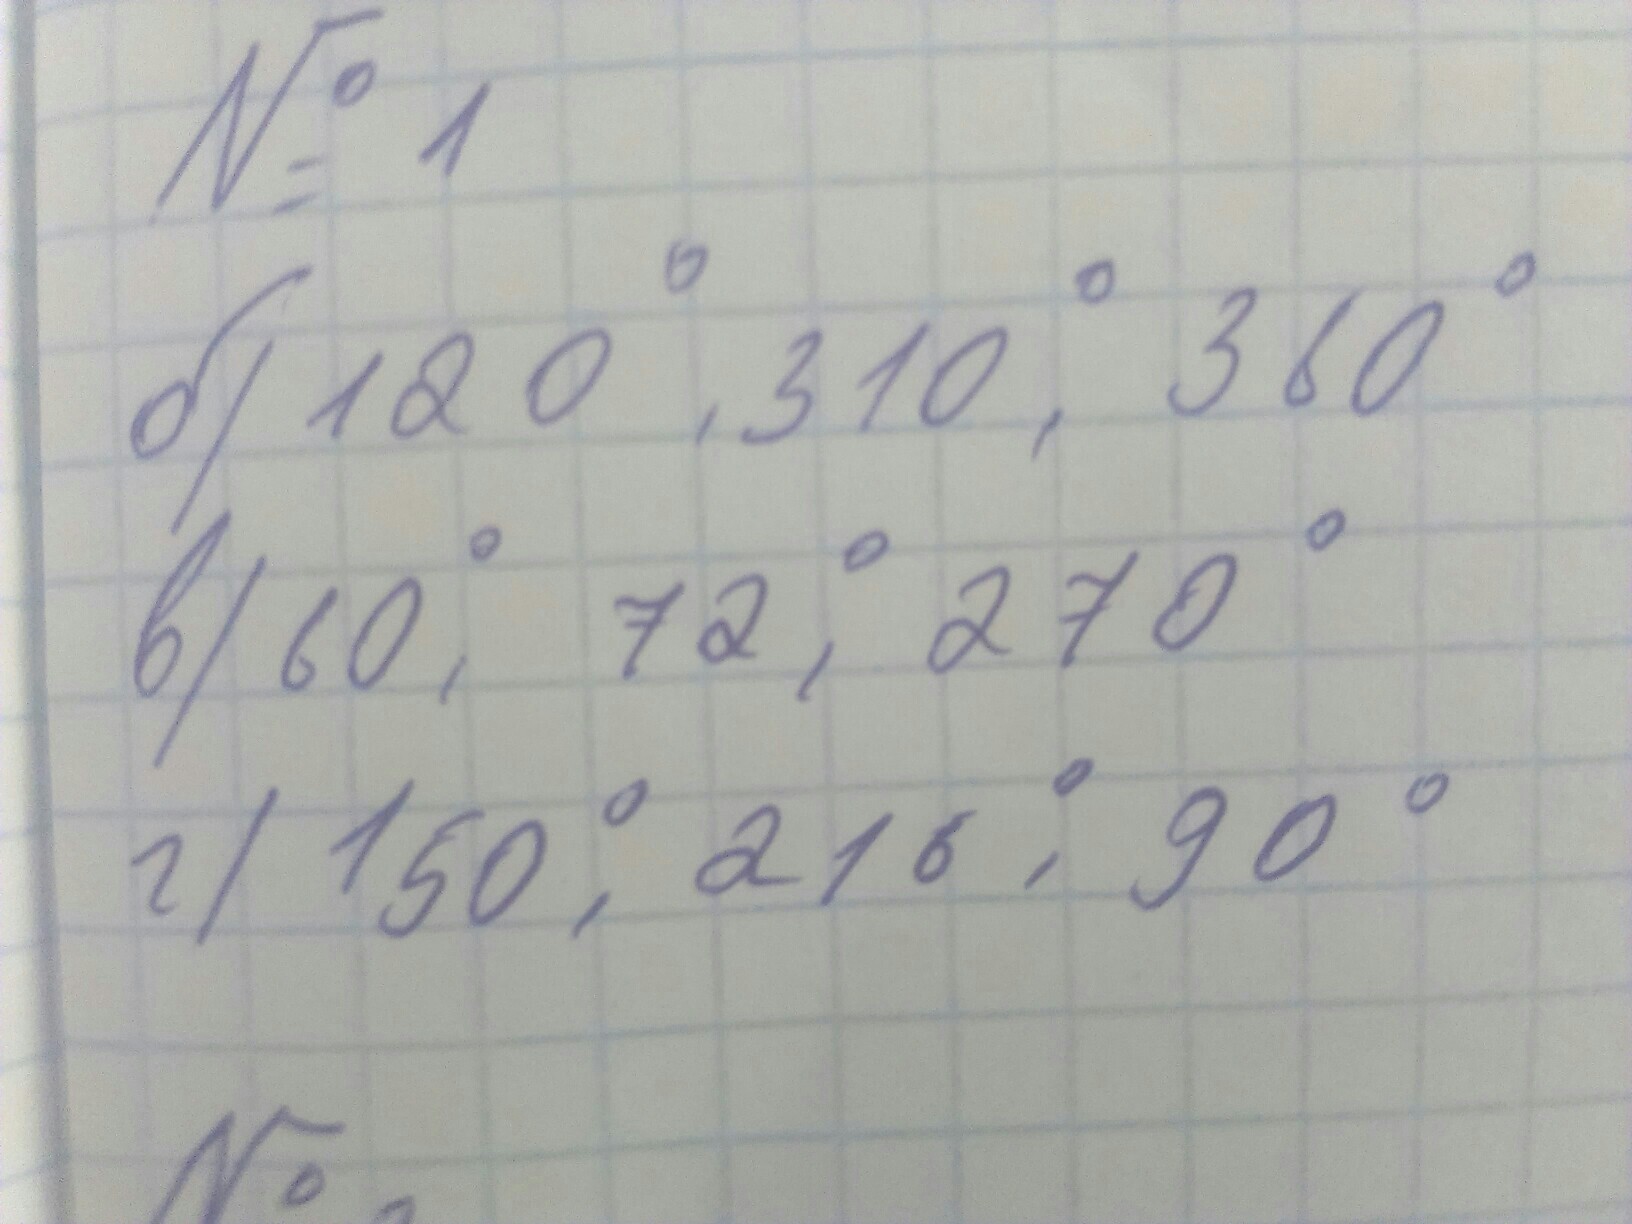 № 1
б) 120°, 310°, 360°
в) 60°, 72°, 270°
г) 150°, 216°, 90°
№